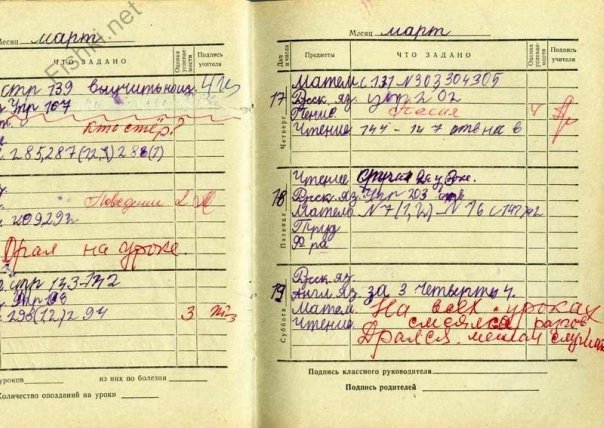 Месяц март
ЧТО ЗАДАНО
Оценка успеваемости
Подпись учителя
стр 139 выучить наиз.
Упр 167
Кто стёр?
285,287(1,2,3)288(1)
Поведение 2
209292
Орал на уроке.
упр 143-142
298(12)294 3
уроков из них по болезни
Количество опозданий на уроки
Месяц март
День и число
Предметы
ЧТО ЗАДАНО
Оценка успеваемости
Подпись учителя
17
Четверг
Матем с 131 N 303,304305
Русск. яз. упр 202
Пение Песня 4
Чтение 144-147 отв на в
18
Пятница
Чтение
Русск. яз. Упр 203
Матем N 7(1,2)-N 16 с 142
Труд
Ф ра
19
Суббота
Русск. яз.
Англ. яз. за 3 четверть 4.
Матем На всех уроках
Чтение смеялся
Дрался, мешал
Подпись классного руководителя
Подпись родителей
Fishki.net